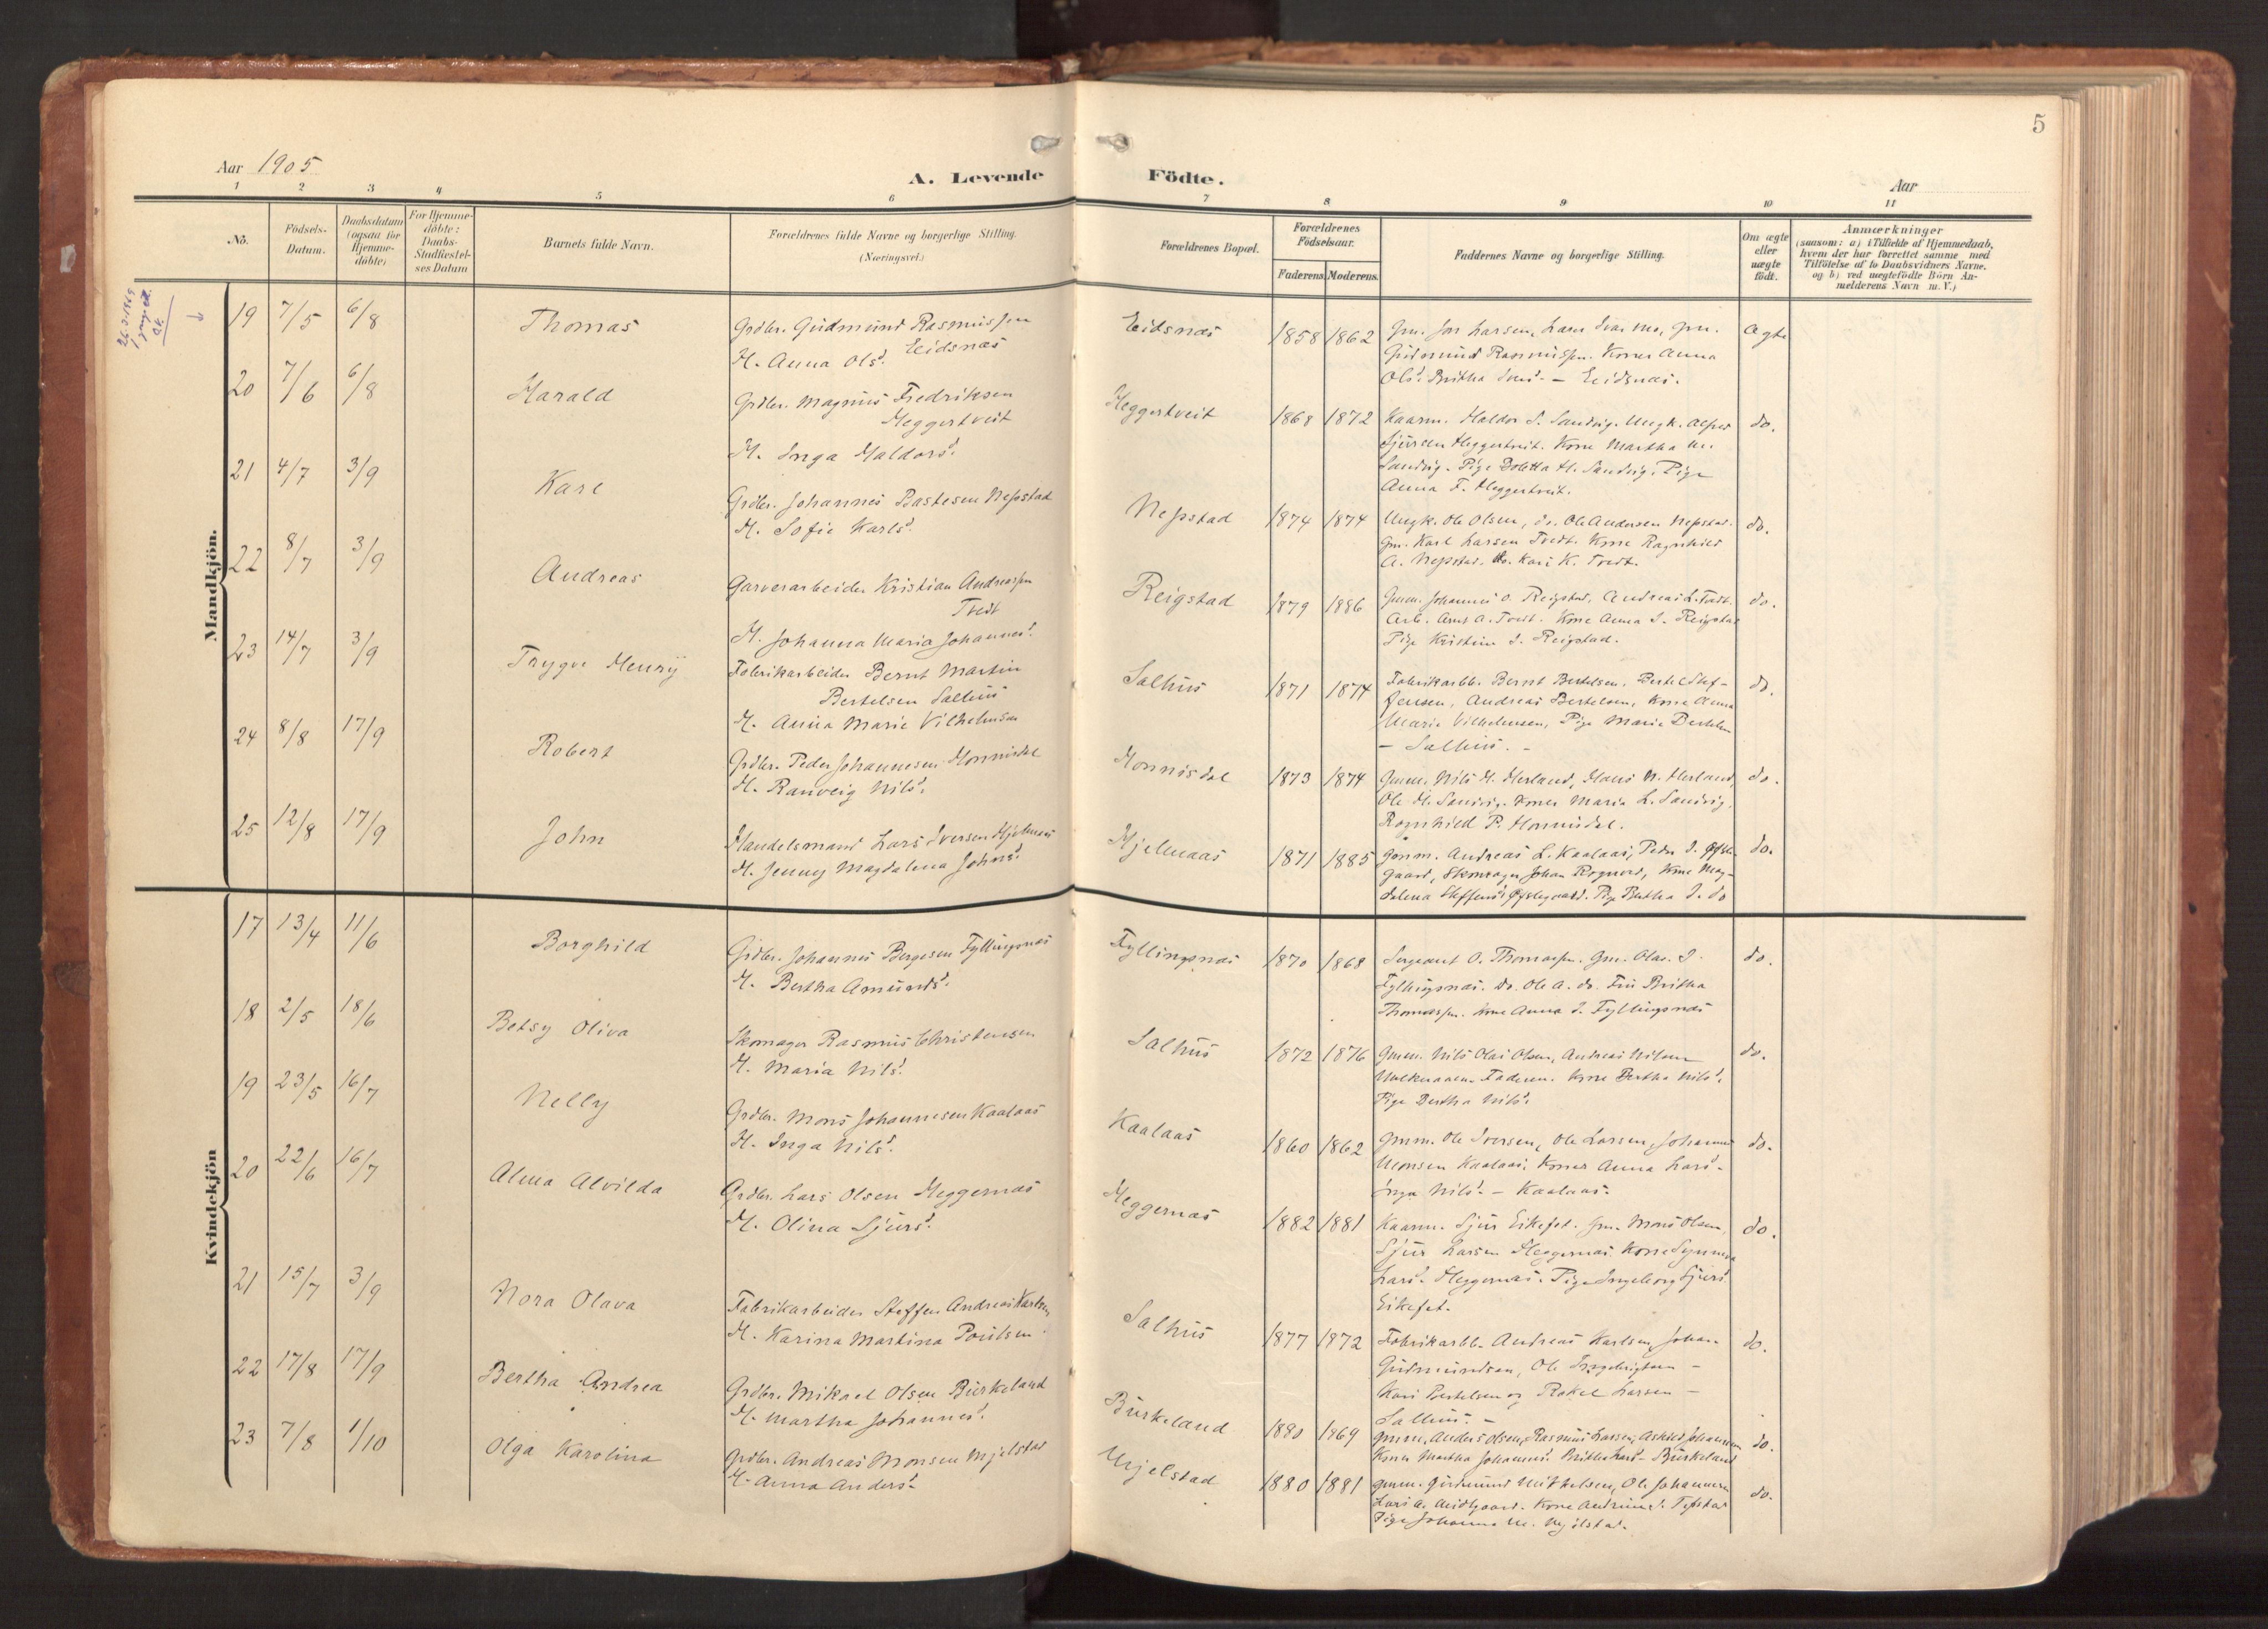 5
Aar 1905
A. Levende Födte.
Aar
1 2 3 4 5 6 7 8 9 10 11
No.
Födsels-Datum.
Daabsdatum (ogsaa for Hjemme-döbte)
For Hjemme-döbte: Daabs-Stadfæstel-ses Datum
Barnets fulde Navn.
Forældrenes fulde Navne og borgerlige Stilling.
(Næringsvei.)
Forældrenes Bopæl.
Forældrenes Födselsaar.
Faderens Moderens.
Faddernes Navne og borgerlige Stilling.
Om ægte eller uægte födt.
Anmærkninger
(saasom: a) i Tilfælde af Hjemmedaab,
hvem der har forrettet samme med
Tilföielse af to Daabsvidners Navne,
og b) ved uægtefödte Börn An-
melderens Navn m. V.)
Mandkjön.
19 7/5 6/8 Thomas
Grdbr. Gudmund Rasmussen
Eidsnæs
H. Anna Olsd.
Eidsnæs 1858 1862
Gm. Jon Larsen, Lars
Gudmund Rasmussen. Koner Anna
Olsd. Britha - Eidsnæs.
Ægte
20 7/6 6/8 Harald
Grdbr. Magnus Fredriksen
Heggertveit
H. Inga Haldorsd.
Heggertveit 1868 1872
Kaarm. Haldor S. Sandvig. Ungk. Alfred
Sjursen Heggertveit. Kone Martha M.
Sandvig. Pige Boletta H. Sandvig. Pige
Anna F. Heggertveit.
do.
21 4/7 3/9 Karl
Grdbr. Johannes Bastesen Nepstad
H. Sofie Karlsd.
Nepstad 1874 1874
Ungk. Ole Olsen, do. Ole Andersen Nepstad.
Gm. Karl Larsen Tvedt. Kone Ragnhild
A. Nepstad. do. Kari K. Tvedt.
do.
22 8/7 3/9 Andreas
Garverarbeider Kristian Andreassen
Tvedt
H. Johanna Maria Johannesd.
Reigstad 1879 1886
Gmm. Johannes O. Reigstad, Andreas L. Tvedt.
Arb. Arne A. Tvedt. Kone Anna J. Reigstad
Pige Kristine J. Reigstad.
do.
23 14/7 3/9 Trygve Henry
Fabrikarbeider Bernt Martin
Bertelsen Salhus
H. Anna Marie Vilhelmsen
Salhus 1871 1874
Fabrikarbb. Bernt Bertelsen, Bertel Stef-
fensen, Andreas Bertelsen, Kone Anna
Marie Vilhelmsen, Pige Marie Bertelsen
- Salhus. -
do.
24 8/8 17/9 Robert
Grdbr. Peder Johannesen Honnisdal
H. Ranveig Nilsd.
Honnisdal 1873 1874
Gmm. Nils H. Herland, Hans N. Herland,
Ole H. Sandvig. Koner Maria L. Sandvig,
Ragnhild P. Honnisdal.
do.
25 12/8 17/9 John
Handelsmand Lars Iversen Hjelmaas
H. Jenny Magdalena Johnsd.
Hjelmaas 1871 1885
Gmm. Andreas L. Kaalaas, Peder J.
gaard, Skomager Johan Rognved, Kone Mag-
dalena Steffensd. Pige Bertha J. do
do.
Kvindekjön
17 13/4 11/6 Borghild
Grdbr. Johannes Bergesen Fyllingsnæs
H. Bertha Amundsd.
Fyllingsnæs 1870 1868
Sergeant O. Thomassen. Gm. Olav J.
Fyllingsnæs. do. Ole A. do. Fru Britha
Thomassen. Kone Anna J. Fyllingsnæs
do.
18 2/5 18/6 Betsy Oliva
Skomager Rasmus Christensen
H. Maria Nilsd.
Salhus 1872 1876
Gmm. Nils Olai Olsen, Andreas Nilsen
Faderen. Kone Bertha Nilsd.
Pige Bertha Nilsd.
do.
19 23/5 16/7 Nelly
Grdbr. Mons Johannesen Kaalaas
H. Inga Nilsd.
Kaalaas 1860 1862
Gmm. Ole Iversen, Ole Larsen, Johannes
Monsen Kaalaas, Koner Anna Larsd.
Inga Nilsd. - Kaalaas.
do.
20 22/6 16/7 Alma Alvilda
Grdbr. Lars Olsen Heggernæs
H. Olina Sjursd.
Heggernæs 1882 1881
Kaarm. Sjur Eikefet. Gm. Mons Olsen,
Sjur Larsen Heggernæs. Kone Synneva
Larsd. Heggernæs. Pige Ingeborg Sjursd.
Eikefet.
do.
21 15/7 3/9 Nora Olava
Fabrikarbeider Steffen Andreas Karlsen
H. Karina Martina Poulsen.
Salhus 1877 1872
Fabrikarbb. Andreas Karlsen, Johan
Gudmundsen, Ole Ingebrigtsen -
Kari Bertelsen og Rakel Larsen -
Salhus. -
do.
22 17/8 17/9 Bertha Andrea
Grdbr. Mikael Olsen Burkeland
H. Martha Johannesd.
Burkeland 1880 1869
Gmm. Anders Olsen, Rasmus Larsen, Johannesen
Koner Martha Johannesd. Britha Larsd. Burkeland
do.
23 7/8 1/10 Olga Karolina
Grdbr. Andreas Monsen Mjelstad
H. Anna Andersd.
Mjelstad 1880 1881
Gmm. Gudmund Mikkelsen, Ole Johannesen
Lars A. Midtgaard. Kone Andrina J. Tepstad
Pige Johanna M. Mjelstad.
do.